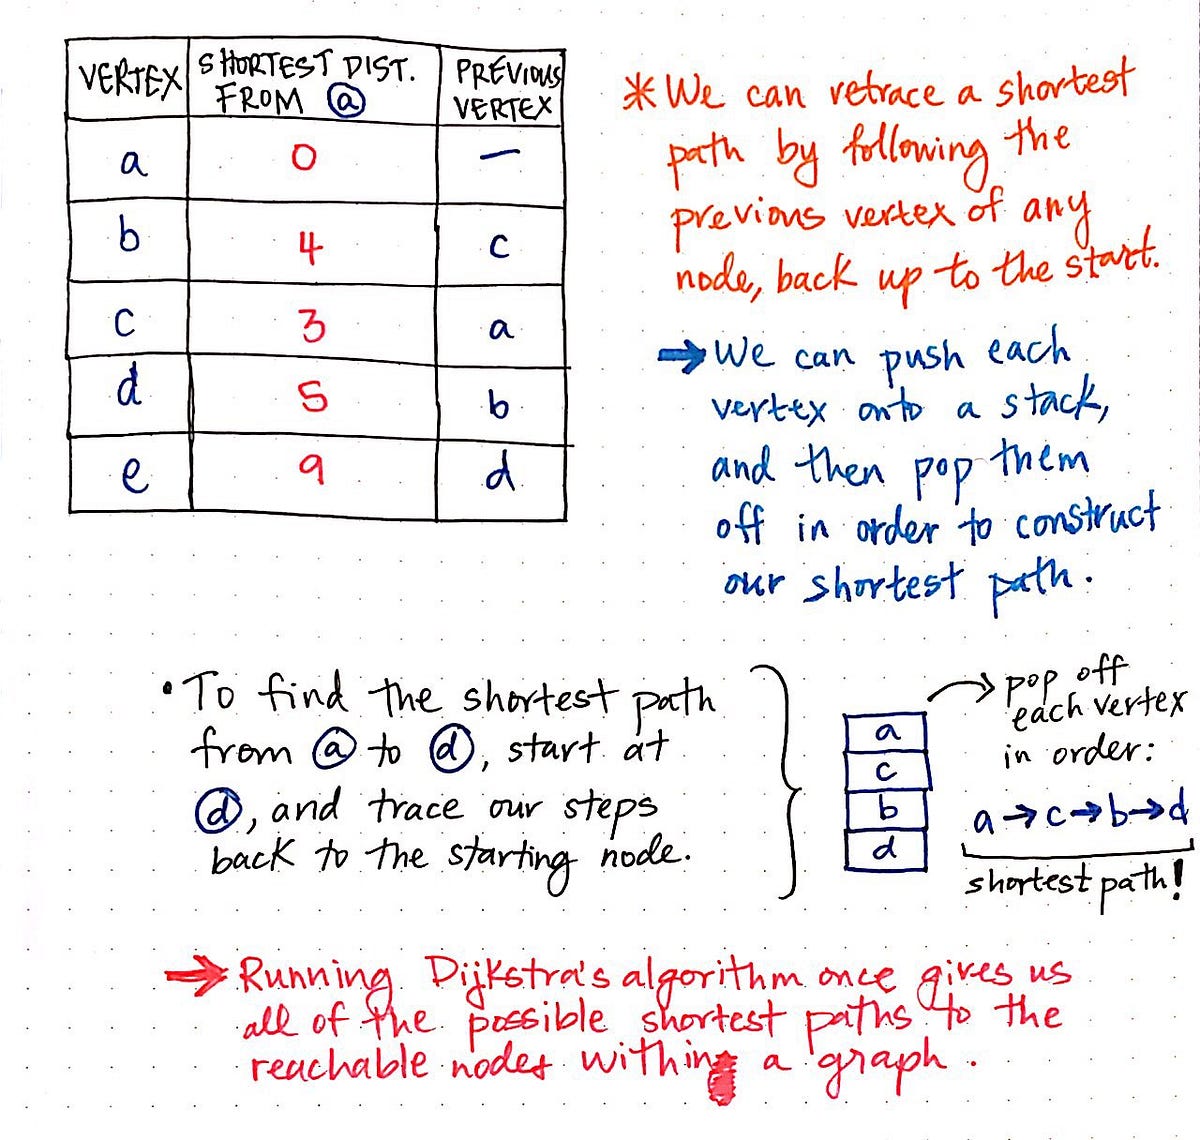 VERTEX SHORTEST DIST. FROM ⓐ PREVIOUS VERTEX
a 0 —
b 4 c
c 3 a
d 5 b
e 9 d
* We can retrace a shortest
path by following the
previous vertex of any
node, back up to the start.
→ We can push each
vertex onto a stack,
and then pop them
off in order to construct
our shortest path.
• To find the shortest path
from ⓐ to ⓓ, start at
ⓓ, and trace our steps
back to the starting node.
a
c
b
d
→ pop off
each vertex
in order:
a→c→b→d
shortest path!
→ Running Dijkstra's algorithm once gives us
all of the possible shortest paths to the
reachable nodes within a graph.